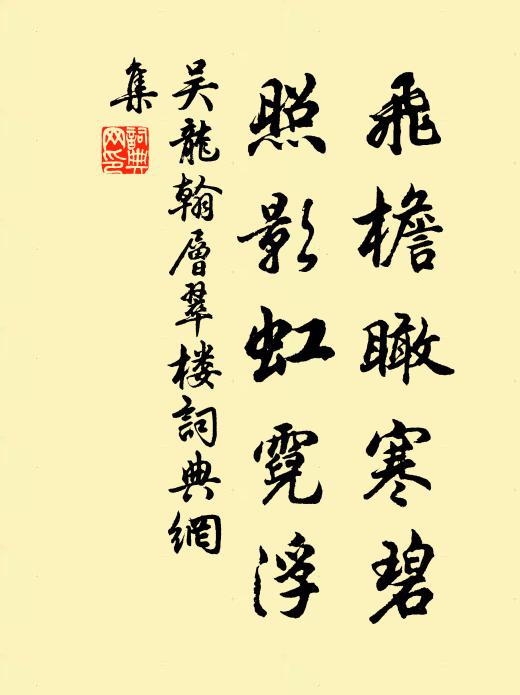 飛檐瞰寒碧
照影虹霓浮
吴龍翰層翠楼詞典網
集
詞典
网印